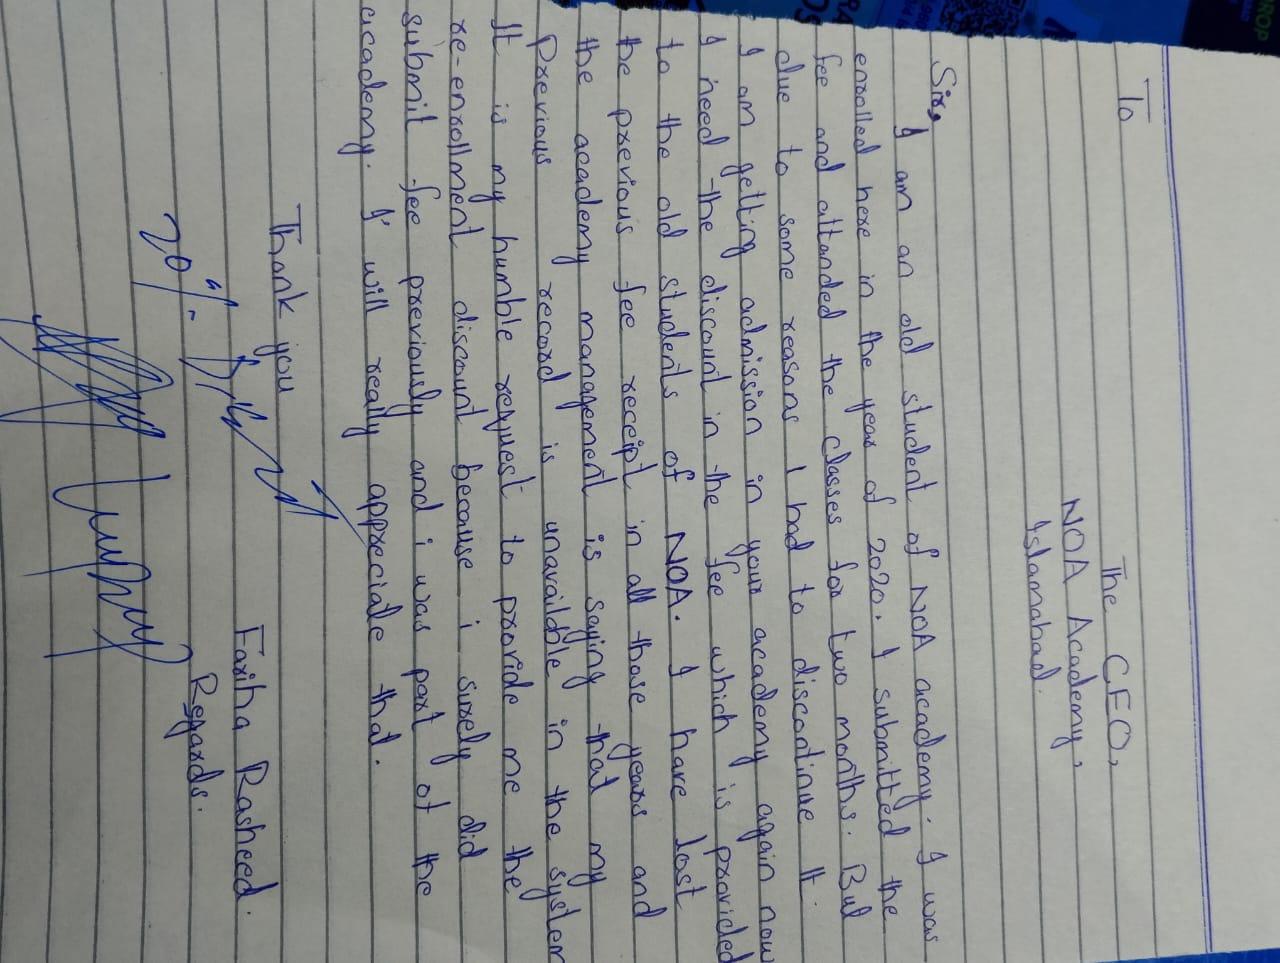 To
The CEO,
NOA Academy,
Islamabad.
Sir,
I am an old student of NOA academy. I was
enrolled here in the year of 2020. I submitted the
fee and attanded the classes for two months. But
due to some reasons I had to discontinue it.
I am getting admission in your academy again now
I need the discount in the fee which is provided
to the old students of NOA. I have lost
the previous fee receipt in all those years and
the academy management is saying that my
Previous record is unavailable in the system
It is my humble request to provide me the
re-enrollment discount because i surely did
submit fee previously and i was part of the
academy. I' will really appreciate that.
Thank you
Fariha Rasheed.
Regards.
20%